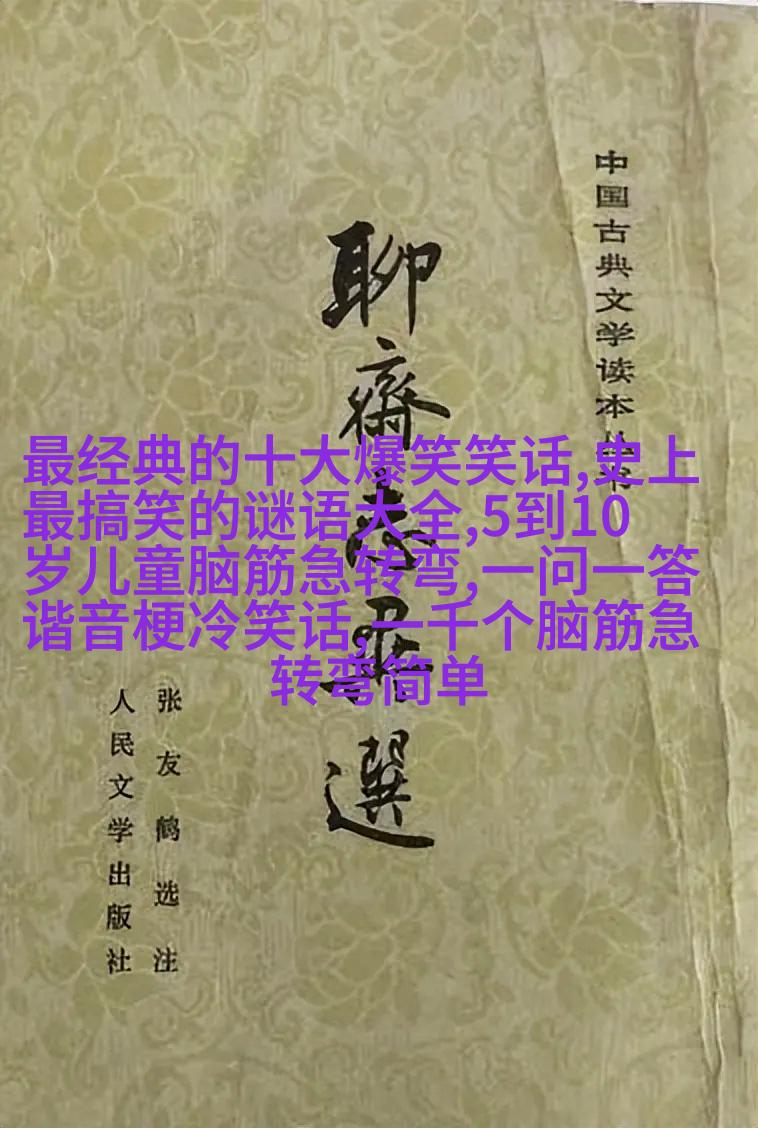 中国古典文学读本丛书
聊齋志異選
最经典的十大爆笑笑话,史上
最搞笑的谜语大全,5到10
岁儿童脑筋急转弯,一问一答
谐音梗冷笑话,一千个脑筋急
转弯简单
张友鹤选注
人民文学出版社